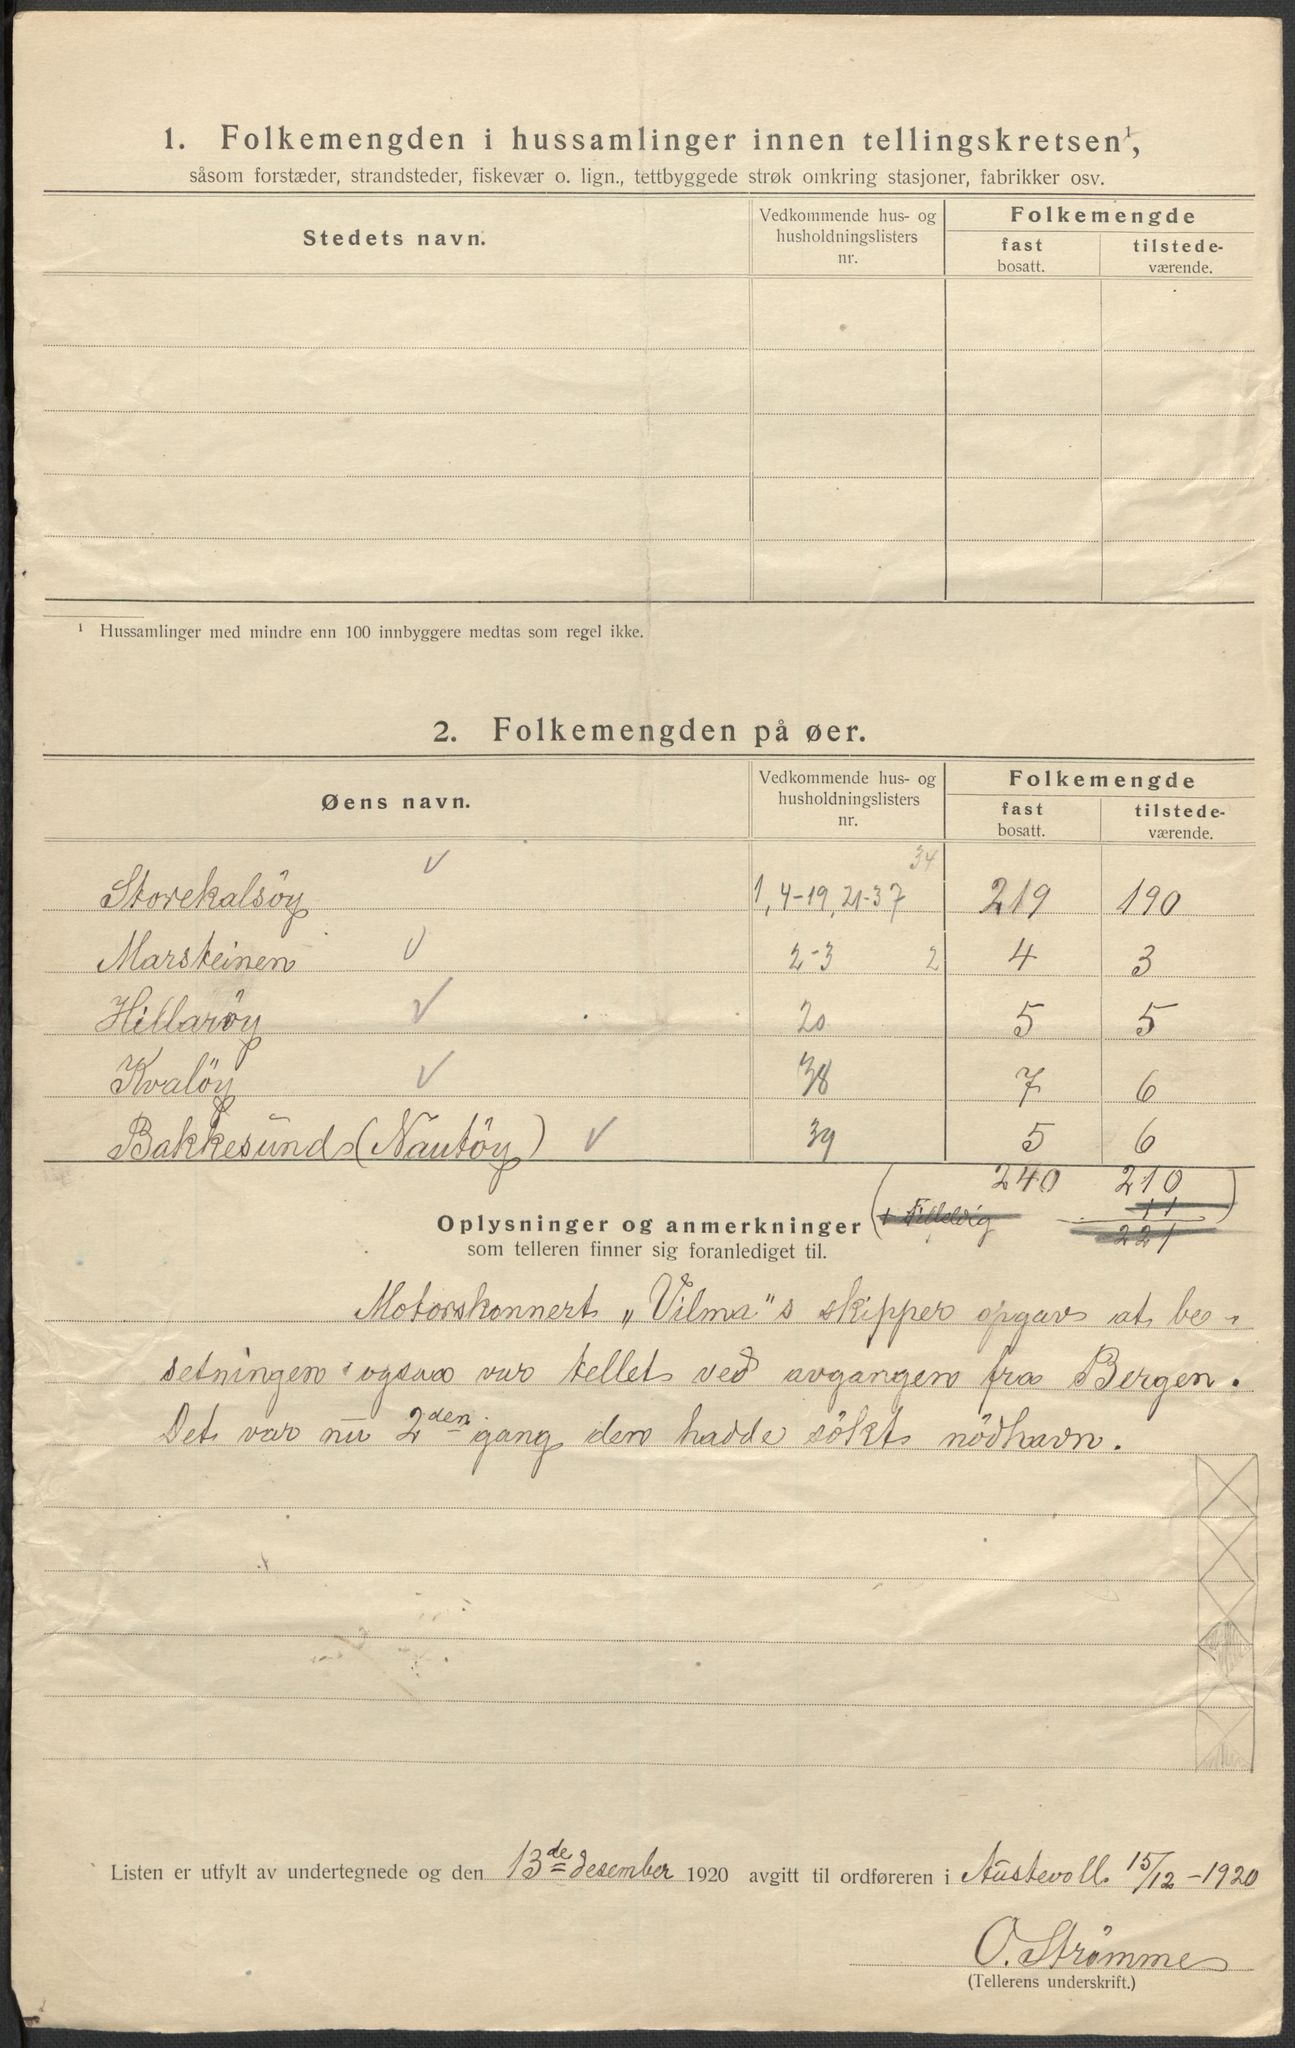 1. Folkemengden i hussamlinger innen tellingskretsen¹,
såsom forstæder, strandsteder, fiskevær o. lign., tettbyggede strøk omkring stasjoner, fabrikker osv.
Stedets navn.
Vedkommende hus- og
husholdningslisters
nr.
Folkemengde
fast
bosatt.
tilstede-
værende.
¹ Hussamlinger med mindre enn 100 innbyggere medtas som regel ikke.
2. Folkemengden på øer.
Øens navn.
Vedkommende hus- og
husholdningslisters
nr.
Folkemengde
fast
bosatt.
tilstede-
værende.
34
Storekalsöy 1, 4-19, 21-37 219 190
Marsteinen 2-3 2 4 3
Hillaröy 20 5 5
Kvalöy 38 7 6
Bakkesund (Nautöy) 39 5 6
240 210
11
221
Oplysninger og anmerkninger
som telleren finner sig foranlediget til.
Motorskonnert „Vilma"s skipper opgav at be-
setningen ogsaa var tellet ved avgangen fra Bergen.
Det var nu 2den gang den hadde sökt nödhavn.
Listen er utfylt av undertegnede og den 13de desember 1920 avgitt til ordføreren i Austevoll. 15/12-1920
O. Strömme
(Tellerens underskrift.)